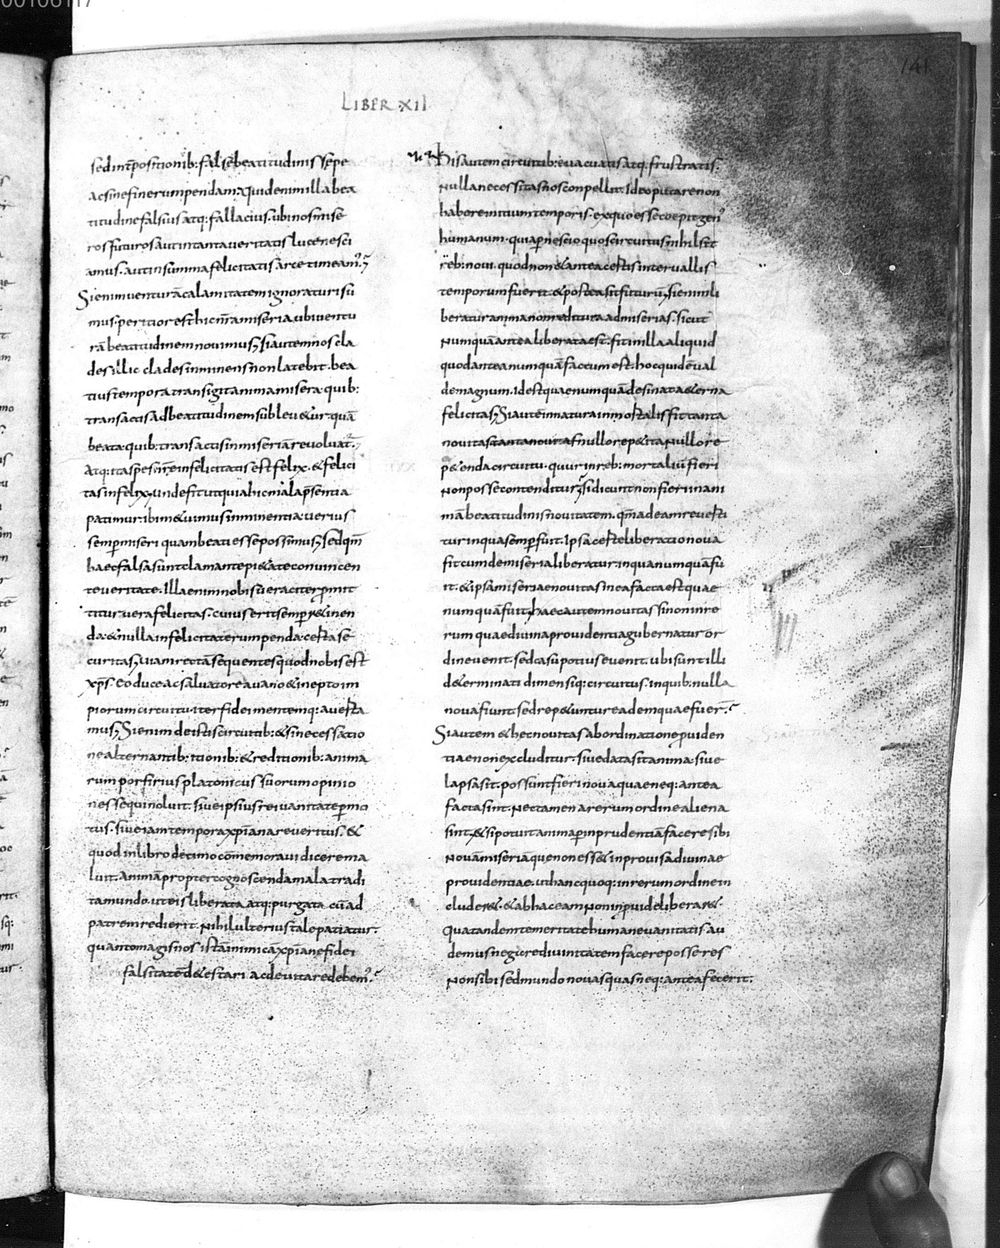 00106117
141
LIBER XII
sed interpositionib: falsę beatitudinis sępe
ac sine fine rumpendam. quid enim illa bea
titudine falsius atq: fallacius. ubi nos mise
ros futuros aut in tanta ueritatis luce nesci
amus. aut in summa felicitatis arce timeam:
Si enim uenturā calamitatem ignoraturi su
mus. peritior est hic nrā miseria ubi uentu
rā beatitudinem nouimus; Si autem nos cla
des illic clades inminens non latebit. bea
tius tempora transigit anima misera. quib:
transactis ad beatitudinem subleuetur. quā
beata. quib: transactis in miseriā reuoluat.
Atq: ita spes nrē infelicitatis est felix. & felici
tas infelix; unde fit ut quia hic mala psentia
patimur. ibi metuimus inminentia. uerius
semp miseri quam beati esse possimus; Sed qm
haec falsa sunt clamante pietate conuincen
te ueritate. Illa enim nobis ueraciter pmit
titur uera felicitas. cuius erit semp retinen
da. & nulla infelicitate rumpenda certa se
curitas; uiam rectā sequentes quod nobis est
xps. eo duce ac saluatore a uano & inepto im
piorum circuitu iter fidei mentemq: auerta
mus; Si enim de istis circuitib: & sine cessatio
ne alternantib: itionib: & reditionib: anima
rum porfirius platonicus suorum opinio
nes sequi noluit. siue ipsius rei uanitate pmo
tus. siue iam tempora xpiana reueritus. &
quod in libro decimo comemoraui dicere ma
luit. Animā propter cognoscenda mala tradi
ta mundo. ut eis liberata atq: purgata. cū ad
patrem redierit. nihil ulterius tale patiatur.
quanto magis nos istā inimicā xpiane fidei
falsitatē detestari ac deuitare debem:
His autem circuitib: euacuatis atq: frustratis.
Nulla necessitas nos conpellit. Ideo putare non
habere initium temporis. ex quo esse coepit gen
humanum. quia p nescio quos circuitus nihil sit
reb: noui. quod non & antea certis interuallis
temporum fuerit. & postea sit futurū; Si enim li
beratur anima non reditura ad miserias. sicut
Numquā antea liberata est. fit in illa aliquid
quod antea numquā factum est. hoc quidē ual
de magnum. Id est quae numquā desinat aeterna
felicitas; Si autem in natura inmortali fit tanta
nouitas nullo repetita nullo re
petenda circuitu. quur in reb: mortaliū fieri
Non posse contenditur; si dicunt non fieri in ani
mā beatitudinis nouitatem. qm ad eam reuerti
tur in qua semp fuit. Ipsa certe liberatio noua
fit cum de miseria liberatur. in qua numquā fu
it. & ipsa miseriae nouitas in ea facta est quae
numquā fuit; haec autem nouitas si non in re
rum quae diuina prouidentia gubernatur or
dine uenit. sed casu potius euenit. ubi sunt illi
determinati dimensiq: circuitus. in quib: nulla
noua fiunt. sed repetuntur eadem quae fuer.
Si autem & hec nouitas ab ordinatione puiden
tiae non excluditur. siue data sit anima. siue
lapsa sit. possunt fieri noua quae neq: antea
facta sint. nec tamen a rerum ordine aliena
sint. & si potuit anima p inprudentiā facere sibi
Nouā miseriā. que non esset inprouisa diuinae
prouidentiae. ut hanc quoq: in rerum ordinem
cluderet. & ab hac eam non inpuide liberaret.
qua tandem temeritate humane uanitatis au
demus negare diuinitatem facere posse res
Non sibi sed mundo nouas quas neq: antea fecerit.